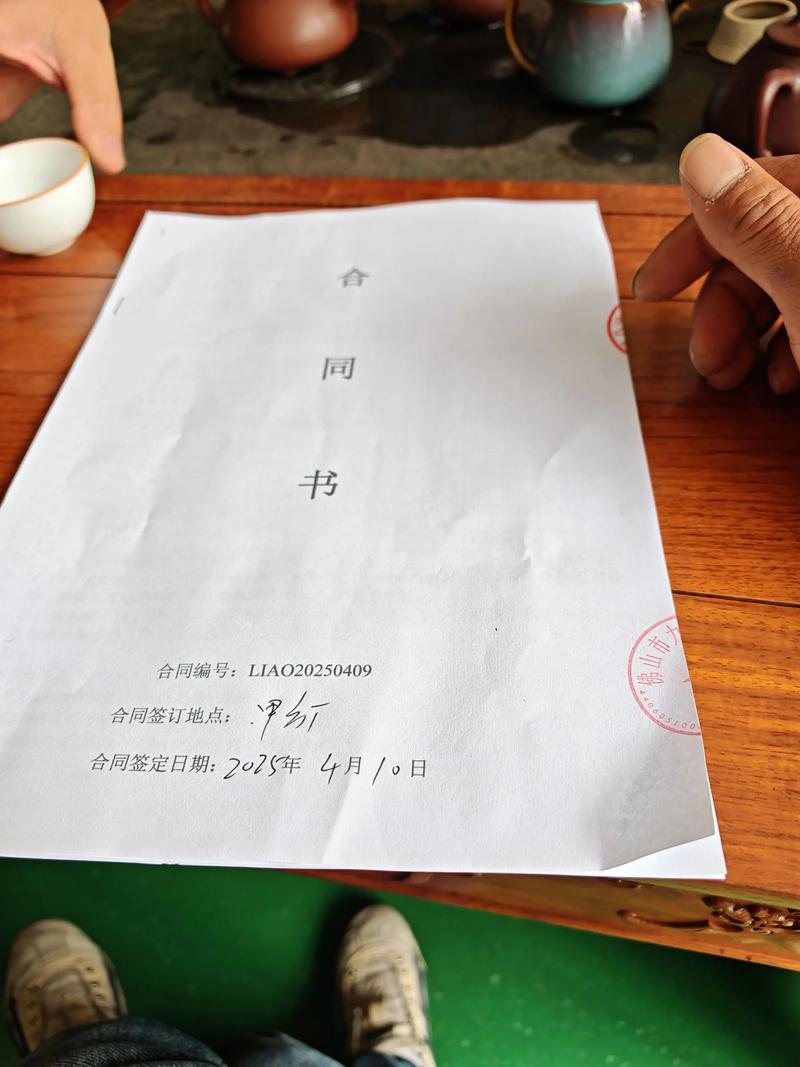 合
同
书
合同编号：LIAO20250409
合同签订地点：
合同签定日期：2025年 4月10日
佛山市